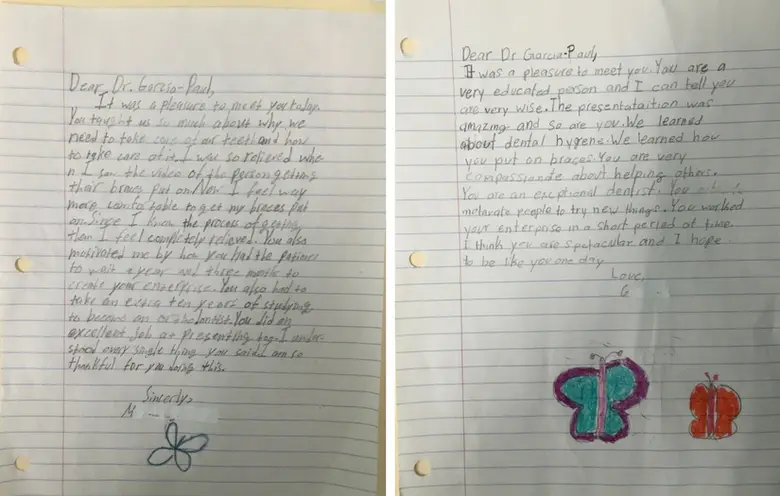 Dear Dr. Garcia-Paul,
It was a pleasure to meet you today.
You taught us so much about why we
need to take care of our teeth and how
to take care of it. I was so relieved whe
n I saw the video of the person getting
their braces put on. Now I feel way
more comfortable to get my braces put
on. Since I know the process of getting
them I feel completely relieved. You also
motivated me by how you had the patience
to wait a year and three months to
create your enterprise. You also had to
take an extra ten years of studying
to become an orthodontist. You did an
excellent job at presenting today. I under-
stood every single thing you said. I am so
thankful for you doing this.
Sincerly,
M
Dear Dr Garcia-Paul,
It was a pleasure to meet you. You are a
very educated person and I can tell you
are very wise. The presentataition was
amazing and so are you. We learned
about dental hygene. We learned how
you put on braces. You are very
compassionate about helping others.
You are an exeptional dentist. You
motavate people to try new things. You worked
your enterprise in a short period of time.
I think you are spetacular and I hope
to be like you one day
Love,
G